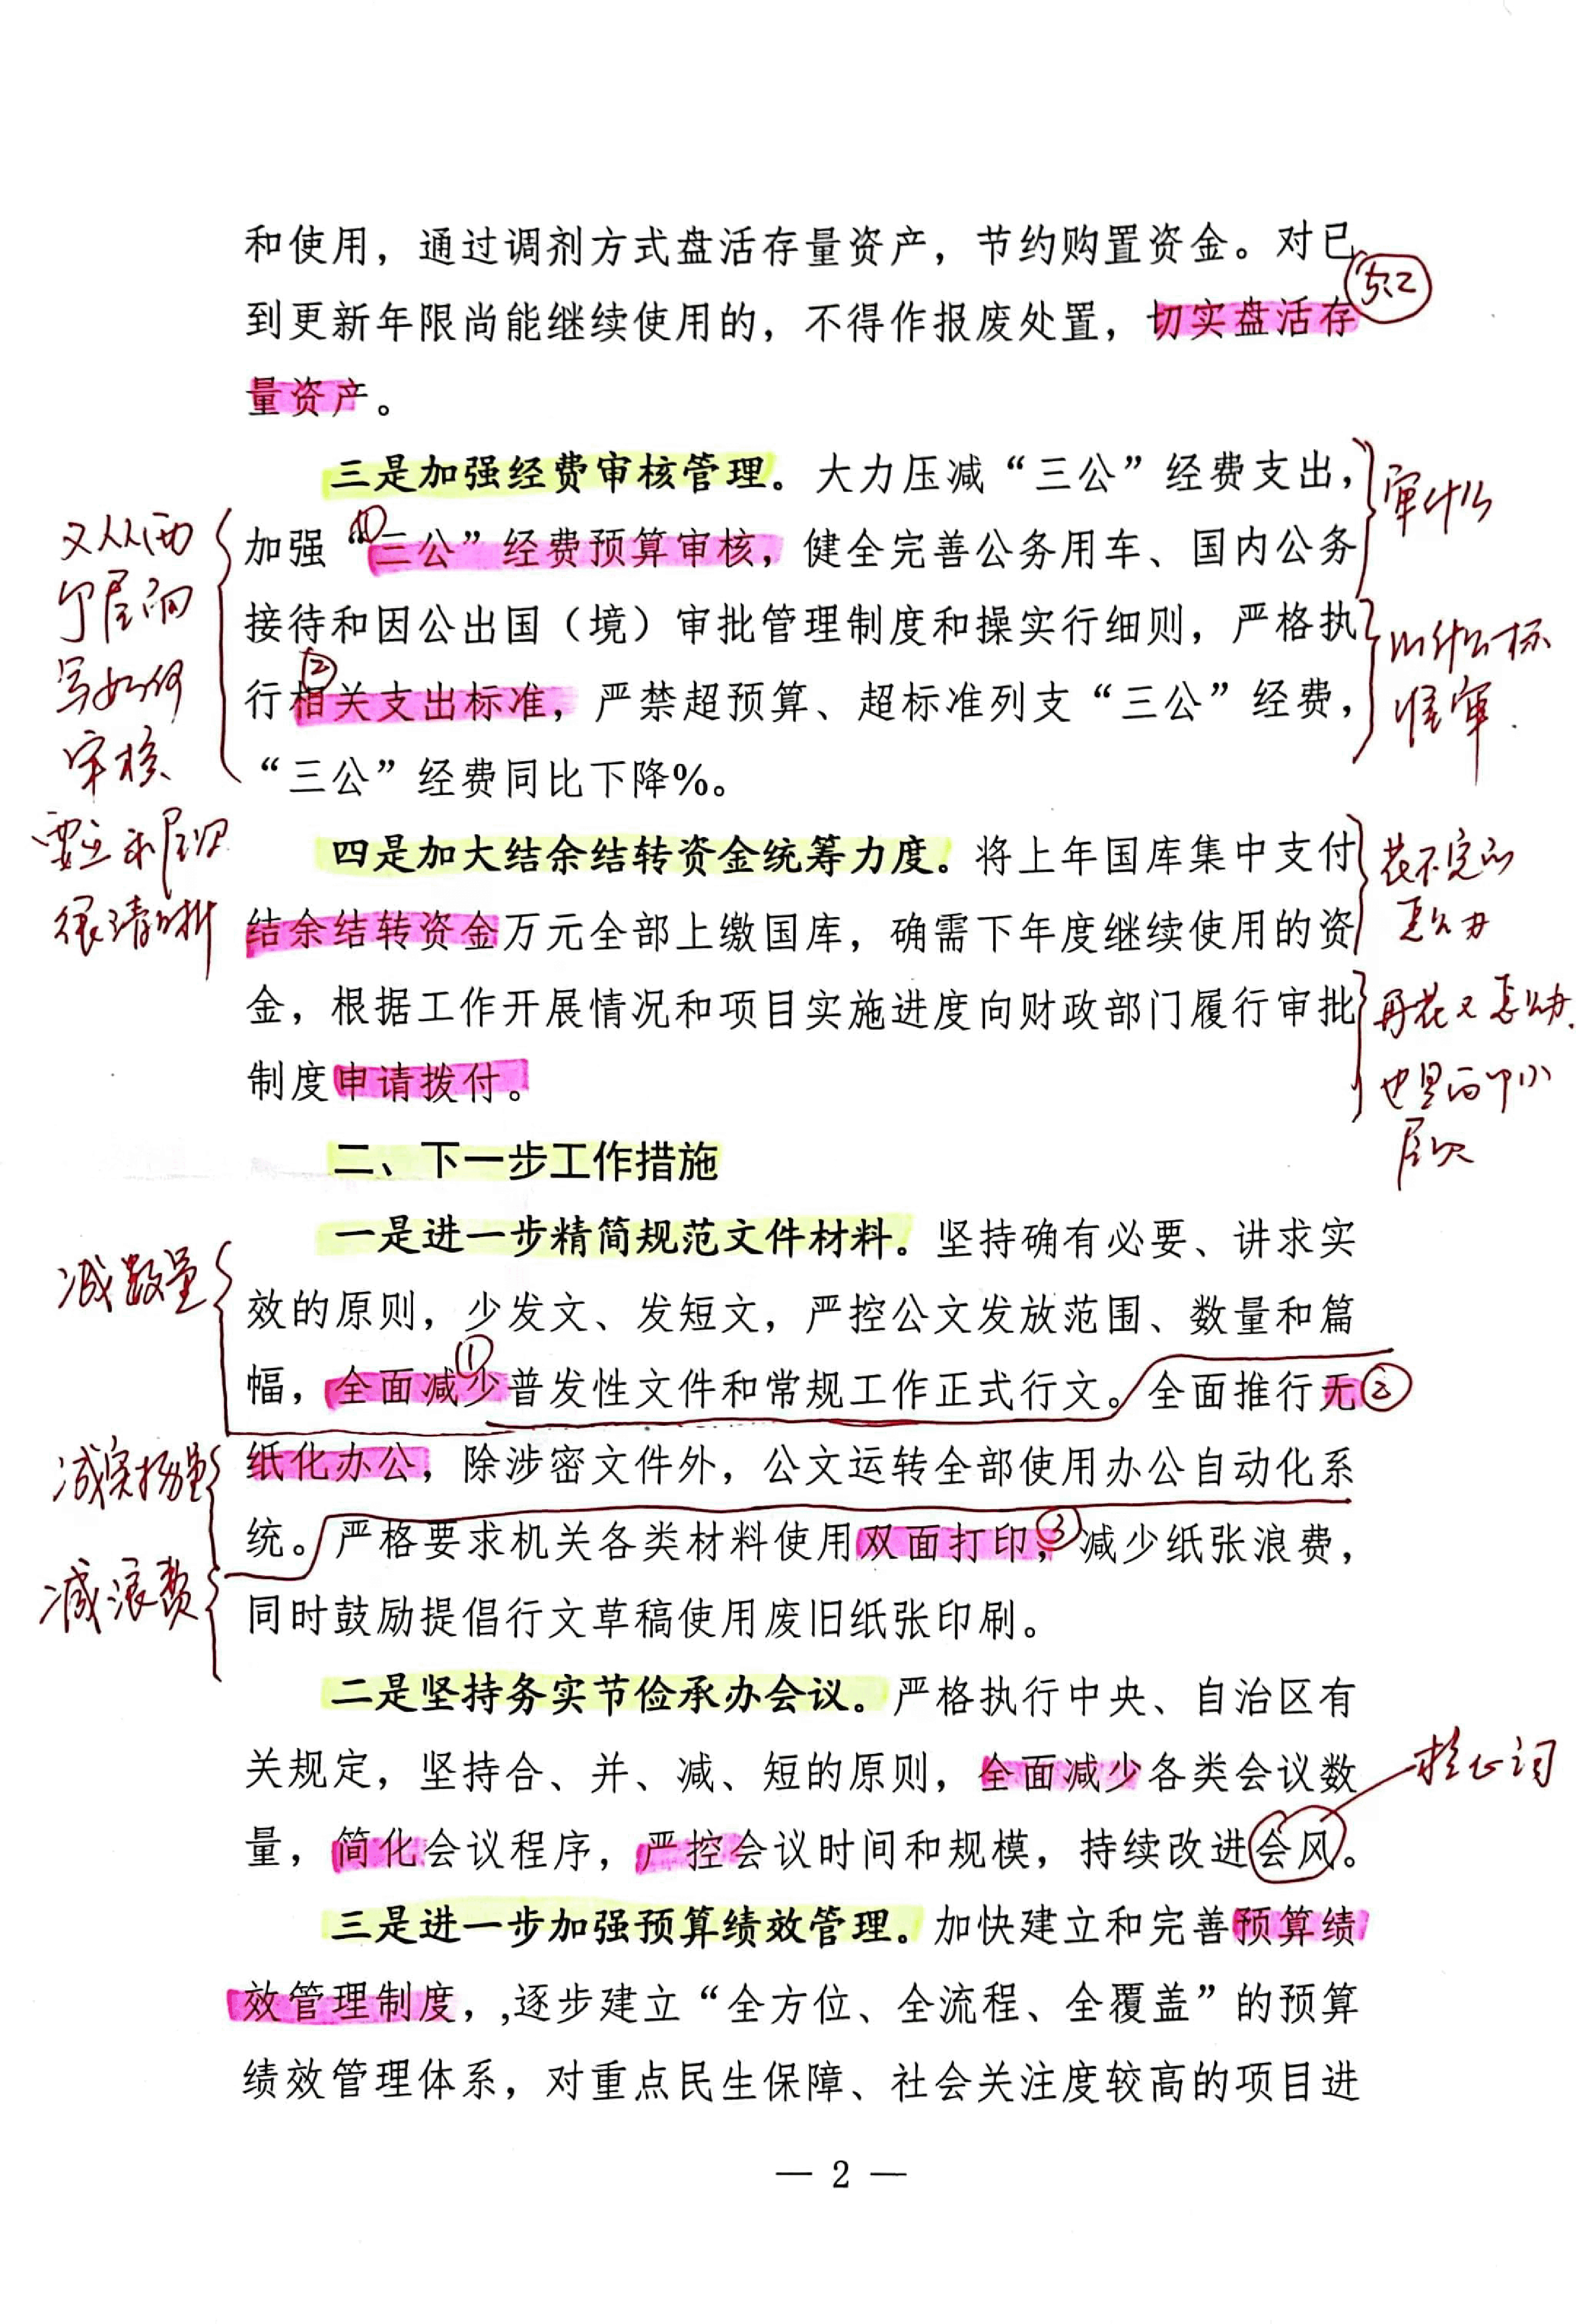 和使用，通过调剂方式盘活存量资产，节约购置资金。对已
到更新年限尚能继续使用的，不得作报废处置，切实盘活存
量资产。
三是加强经费审核管理。大力压减“三公”经费支出，
审什么
又从两
个层面
写如何
审核
要立求层次
很清晰
①
加强“三公”经费预算审核，健全完善公务用车、国内公务
接待和因公出国（境）审批管理制度和操实行细则，严格执
以什么标
准审.
②
行相关支出标准，严禁超预算、超标准列支“三公”经费，
“三公”经费同比下降%。
四是加大结余结转资金统筹力度。将上年国库集中支付
花不完的
怎么办
结余结转资金万元全部上缴国库，确需下年度继续使用的资
金，根据工作开展情况和项目实施进度向财政部门履行审批
再花又怎么办.
也是两个小
层次
制度申请拨付。
二、下一步工作措施
一是进一步精简规范文件材料。坚持确有必要、讲求实
减数量
效的原则，少发文、发短文，严控公文发放范围、数量和篇
①
幅，全面减少普发性文件和常规工作正式行文。全面推行无
②
减实物量
纸化办公，除涉密文件外，公文运转全部使用办公自动化系
减浪费
统。严格要求机关各类材料使用双面打印，减少纸张浪费，
③
同时鼓励提倡行文草稿使用废旧纸张印刷。
二是坚持务实节俭承办会议。严格执行中央、自治区有
关规定，坚持合、并、减、短的原则，全面减少各类会议数
量，简化会议程序，严控会议时间和规模，持续改进会风。
三是进一步加强预算绩效管理。加快建立和完善预算绩
效管理制度，,逐步建立“全方位、全流程、全覆盖”的预算
绩效管理体系，对重点民生保障、社会关注度较高的项目进
— 2 —